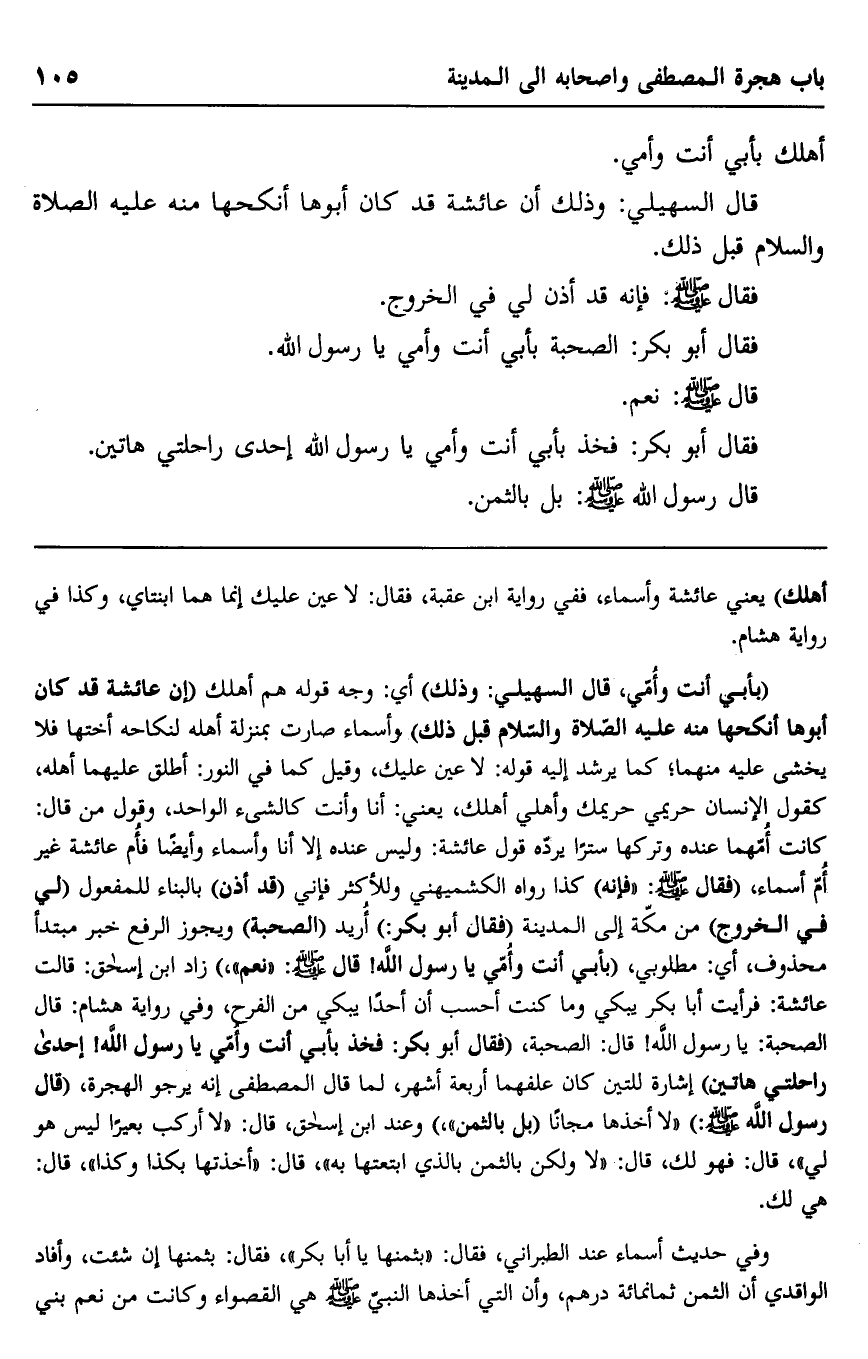 باب هجرة المصطفى واصحابه الى المدينة ١٠٥
أهلك بأبي أنت وأمي.
قال السهيلي: وذلك أن عائشة قد كان أبوها أنكحها منه عليه الصلاة
والسلام قبل ذلك.
فقال ﷺ: فإنه قد أذن لي في الخروج.
فقال أبو بكر: الصحبة بأبي أنت وأمي يا رسول الله.
قال ﷺ: نعم.
فقال أبو بكر: فخذ بأبي أنت وأمي يا رسول الله إحدى راحلتي هاتين.
قال رسول الله ﷺ: بل بالثمن.
أهلك) يعني عائشة وأسماء، ففي رواية ابن عقبة، فقال: لا عين عليك إنما هما ابنتاي، وكذا في
رواية هشام.
(بأبي أنت وأُمّي، قال السهيلي: وذلك) أي: وجه قوله هم أهلك (إن عائشة قد كان
أبوها أنكحها منه عليه الصّلاة والسّلام قبل ذلك) وأسماء صارت بمنزلة أهله لنكاحه أختها فلا
يخشى عليه منهما؛ كما يرشد إليه قوله: لا عين عليك، وقيل كما في النور: أطلق عليهما أهله،
كقول الإنسان حريمي حريمك وأهلي أهلك، يعني: أنا وأنت كالشىء الواحد، وقول من قال:
كانت أُمّهما عنده وتركها سترًا يردّه قول عائشة: وليس عنده إلا أنا وأسماء وأيضًا فأُم عائشة غير
أُمّ أسماء، (فقال ﷺ: «فإنه) كذا رواه الكشميهني وللأكثر فإني (قد أذن) بالبناء للمفعول (لي
في الخروج) من مكّة إلى المدينة (فقال أبو بكر:) أُريد (الصحبة) ويجوز الرفع خبر مبتدأ
محذوف، أي: مطلوبي، (بأبي أنت وأُمّي يا رسول اللَّه! قال ﷺ: «نعم»،) زاد ابن إسحٰق: قالت
عائشة: فرأيت أبا بكر يبكي وما كنت أحسب أن أحدًا يبكي من الفرح، وفي رواية هشام: قال
الصحبة: يا رسول اللَّه! قال: الصحبة، (فقال أبو بكر: فخذ بأبي أنت وأُمّي يا رسول اللَّه! إحدىٰ
راحلتي هاتين) إشارة للتين كان علفهما أربعة أشهر، لما قال المصطفى إنه يرجو الهجرة، (قال
رسول اللَّه ﷺ:) «لا أخذها مجانًا (بل بالثمن»،) وعند ابن إسحٰق، قال: «لا أركب بعيرًا ليس هو
لي»، قال: فهو لك، قال: «لا ولكن بالثمن بالذي ابتعتها به»، قال: «أخذتها بكذا وكذا»، قال:
هي لك.
وفي حديث أسماء عند الطبراني، فقال: «بثمنها يا أبا بكر»، فقال: بثمنها إن شئت، وأفاد
الواقدي أن الثمن ثمانمائة درهم، وأن التي أخذها النبيّ ﷺ هي القصواء وكانت من نعم بني